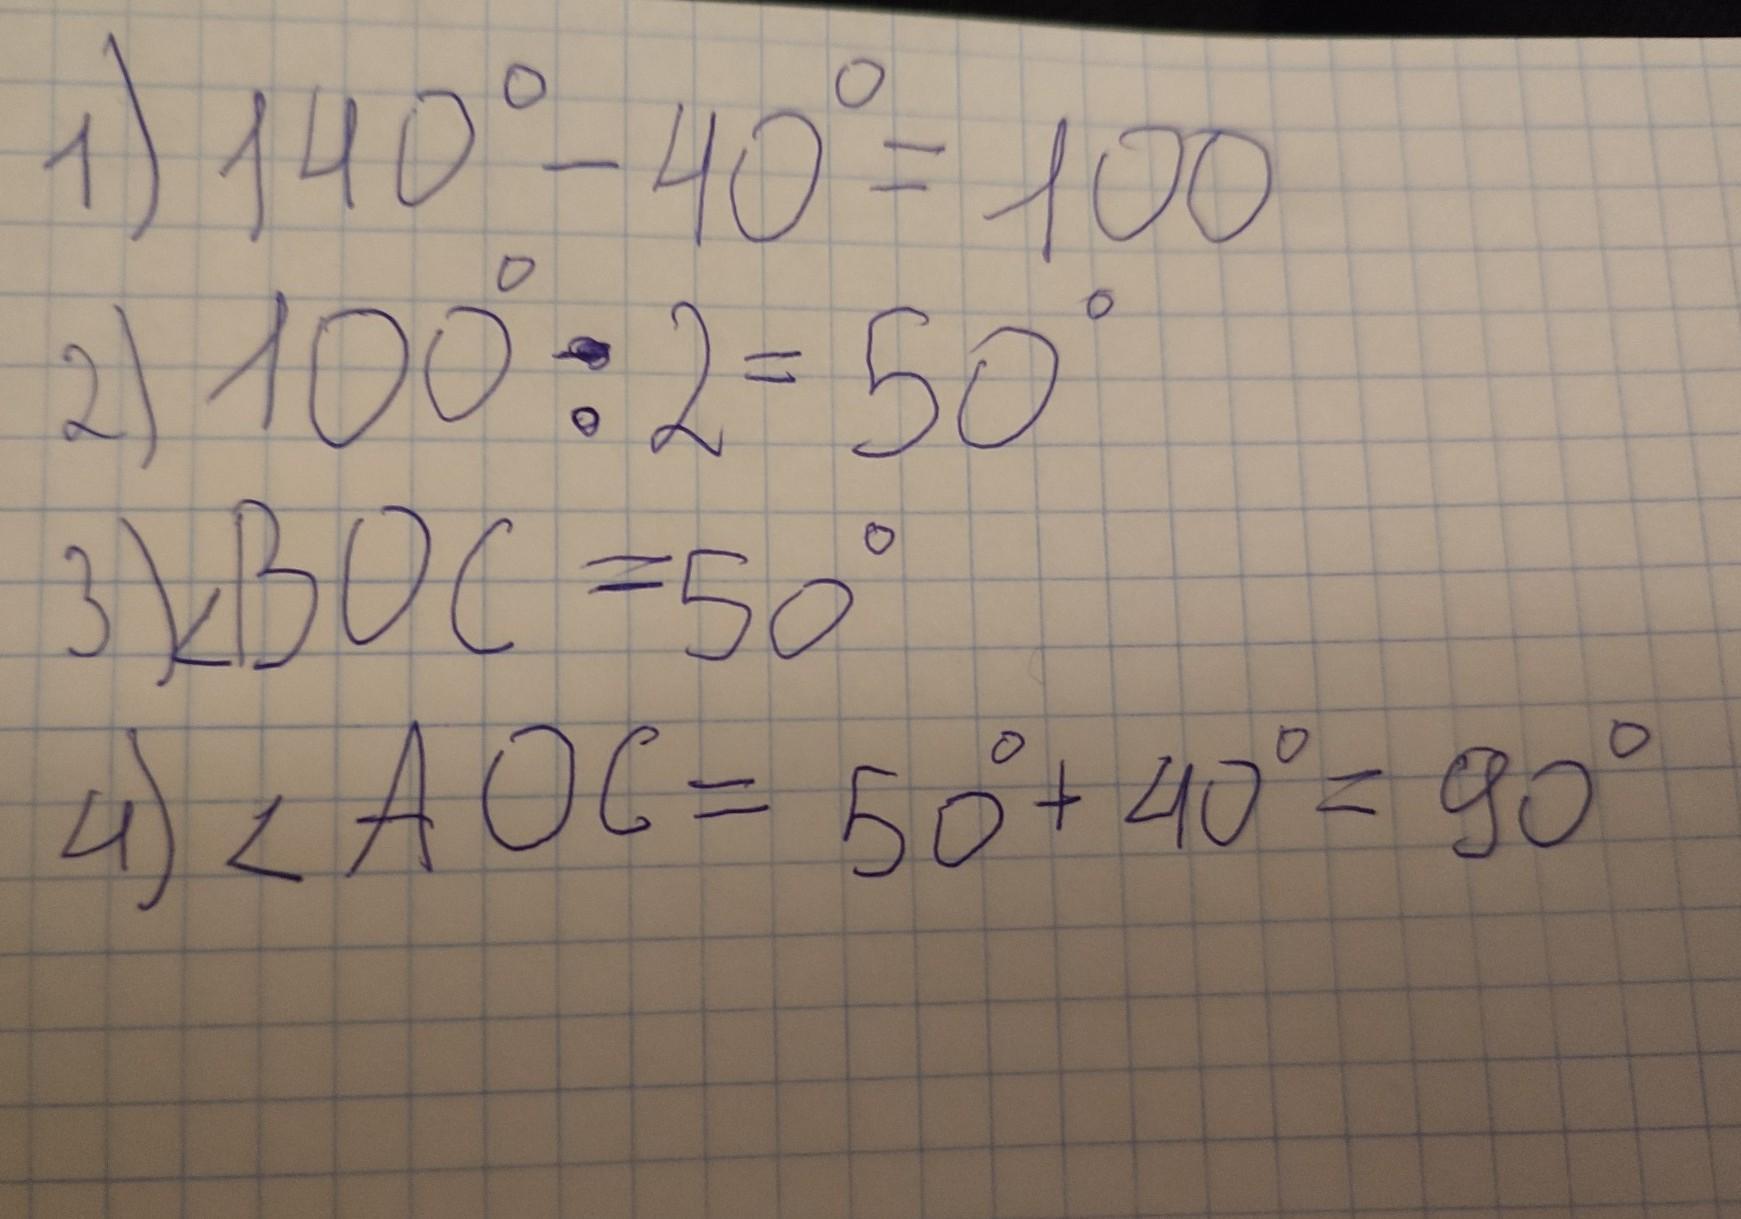 1) 140° - 40° = 100
2) 100° : 2 = 50°
3) ∠BOC = 50°
4) ∠AOC = 50° + 40° = 90°